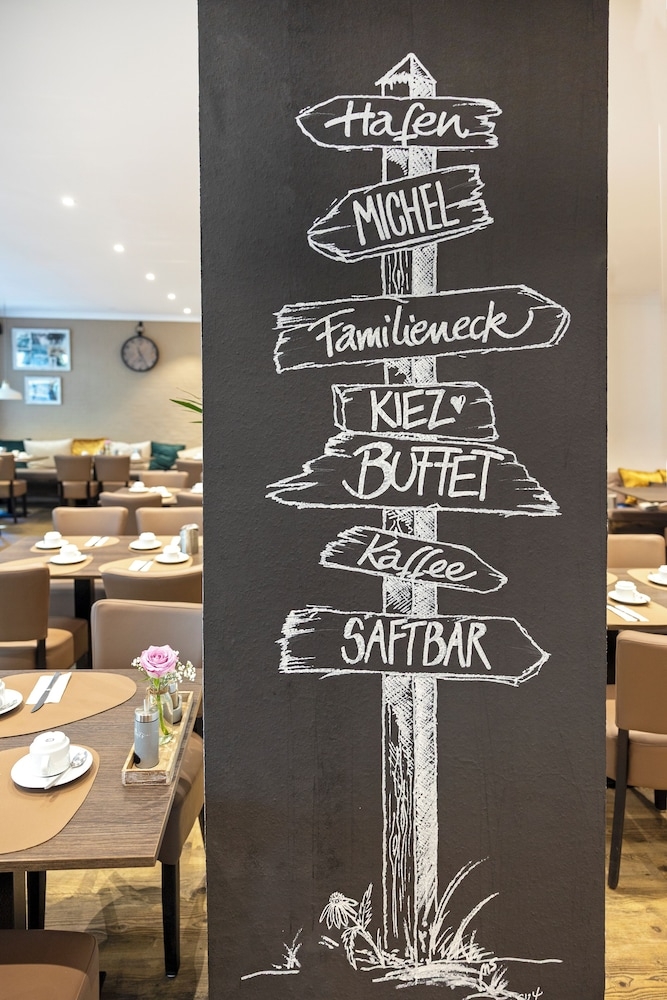 Hafen
MICHEL
Familieneck
KIEZ
BUFFET
Kaffee
SAFTBAR